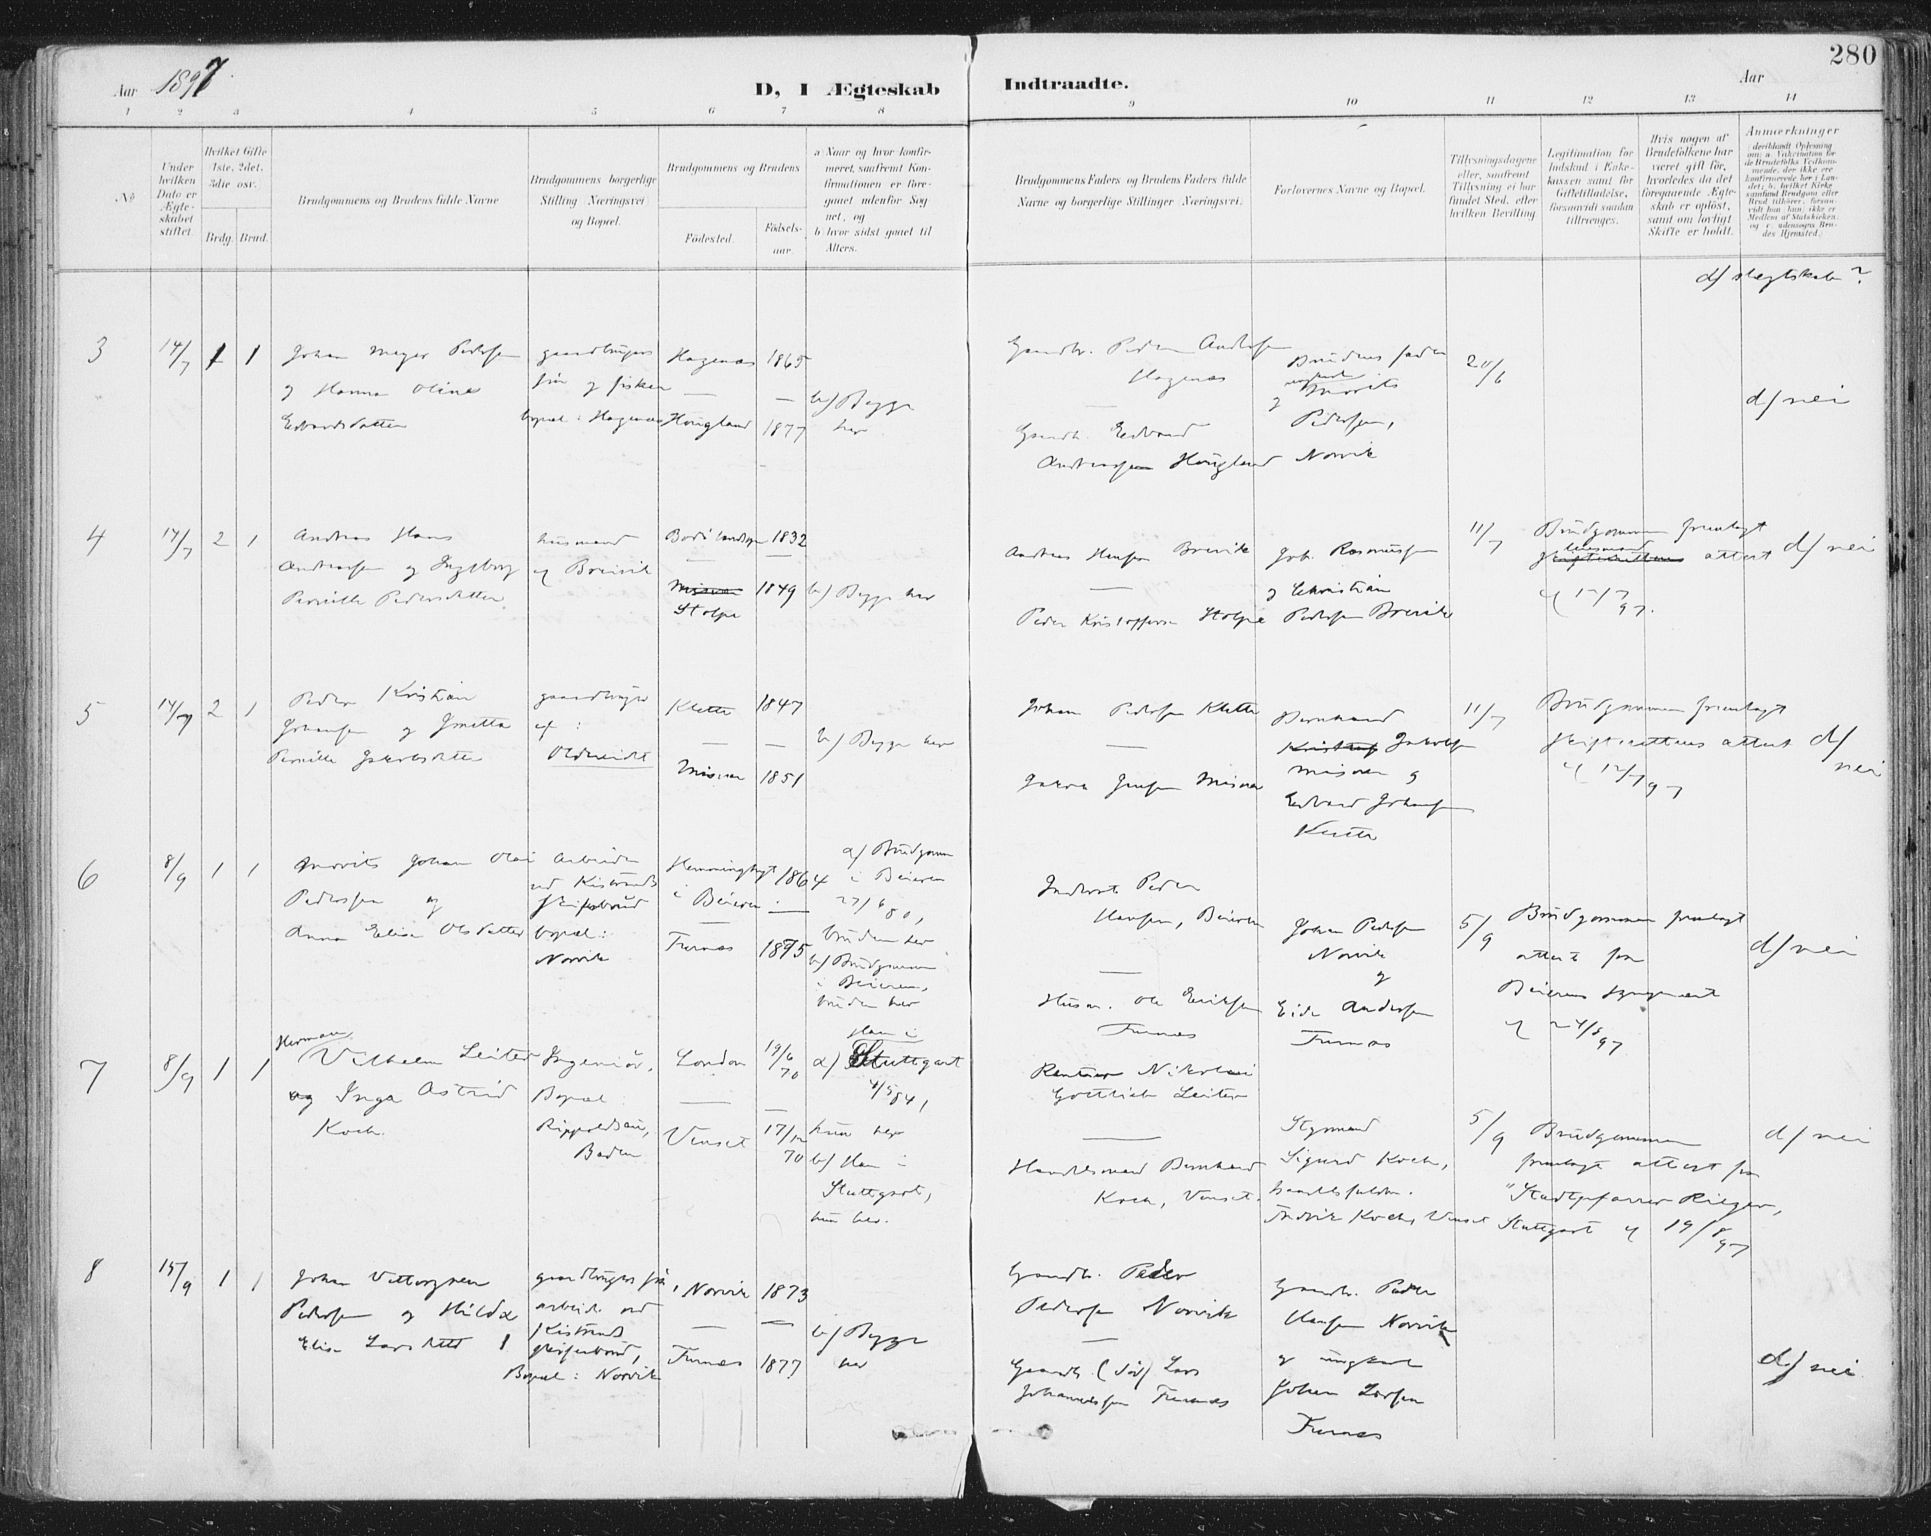 280
Aar 1897.
D, I Ægteskab Indtraadte.
Aar
1 2 3 4 5 6 7 8 9 10 11 12 13 14
No
Under hvilken Dato er Ægteskabet stiftet.
Hvilket Gifte 1ste, 2det, 3die osv.
Brdg. Brud.
Brudgommens og Brudens fulde Navne
Brudgommens borgerlige Stilling Næringsvei og Bopæl.
Brudgommens og Brudens
Födested.
Födselsaar.
a. Naar og hvor konfirmeret, saafremt Konfirmationen er foregaaet udenfor Sognet, og
b. hvor sidst gaaet til Alters.
Brudgommens Faders og Brudens Faders fulde Navne og borgerlige Stillinger Næringsvei.
Forlovernes Navne og Bopæl.
Tillysningsdagene eller, saafremt Tillysning ei har fundet Sted, efter hvilken Bevilling.
Legitimation for Indskud i Enkekassen samt for Giftetilladelse, forsaavidt saadan tiltrænges.
Hvis nogen af Brudefolkene har været gift för, hvorledes da det foregaaende Ægteskab er oplöst, samt om lovligt Skifte er holdt.
Anmærkninger
d/ slegtskab?
3 14/7 1 1
Johan Meyer Pedersen
og Hanna Oline
Edvardsdatter
gaardbrugers
søn og fisker
bopæl: Hagenæs
Hagenæs 1865
Hougland 1877
b/ Bygge
her
Gaardbr. Peder Andersen
Hagenæs
Gaardb. Edvard
Andreassen Hougland
Brudens fader
og ungkarl Morits
Pedersen,
Norvik
20/6
d/ nei
4 14/7 2 1
Andreas Hans
Andreassen og Ingeborg
Pernille Pedersdatter
husmand
Breivik
1832
Misvær
Stolpe
1849
b/ Bygge her
Andreas Hansen Breivik
Peder Kristoffersen Stolpe
Joh. Rasmussen
og Christian
Pedersen Breivik
11/7
Brudgommen fremlagt
attest
12/7 97.
d/ nei
5 14/7 2 1
Peder Kristian
Johansen og
Pernille Jakobsdatter
gaardbruger
Oldereidet
Klette 1847
Misvær 1851
b/ Bygge her
Johan Pedersen Klette
Jakob Jensen Misvær
Bernhard
Jakobsen
Misvær og
Edvard Johansen
Klette
11/7
Brudgommen fremlagt
skifterettens attest
12/7 97
d/ nei
6 8/9 1 1
Morits Johan Olai
Pedersen og
Anna Elise Olsdatter
Arbeider
ved Kistrands
skiferbrud
bopæl:
Norvik
i Beieren
1864
Furnes 1875
a/ Brudgom
i Beieren
27/6 80,
bruden her
b/ Brudgommen
i Beieren,
bruden her
Inderst Peder
Hansen, Beieren
Husm. Ole Eriksen
Furnes
Johan Pedersen
Norvik
og
Eide Andersen
Furnes
5/9
Brudgommen fremlagt
attest fra
Beierens sogneprest
24/8 97
d/ nei
7 8/9 1 1
Herman
Vilhelm Leiter
og Inga Astrid
Koch.
Ingeniør,
Bopæl:
Rippoldsau,
Baden
London 19/6 70
Venset 17/12 70
Han i
a/ Stuttgart
4/5 84,
hun her
b/ Han i
Stuttgart,
hun her.
Rentier Nikolai
Gottlieb Leiter
Handelsmand Bernhard
Koch, Venset.
Styrmand
Sigurd Koch,
Fredrik Koch, Venset
5/9
Brudgommen
fremlagt attest fra
"Stadtpfarrer Rieger,
Stuttgart 19/8 97
d/ nei
8 15/9 1 1
Johan
Pedersen og Hilda
Elise Larsdatter
gaardbrugers søn,
arbeider ved
Kistrands
skiferbrud,
Bopæl: Norvik
Norvik 1873
Furnes 1877
b/ Bygge
her
Gaardbr. Peder
Pedersen Norvik
Gaardb. (død) Lars
Johannessen Furnes
Gaardbr. Peder
Hansen Norvik
og ungkarl
Johan Larsen
Furnes
d/ nei